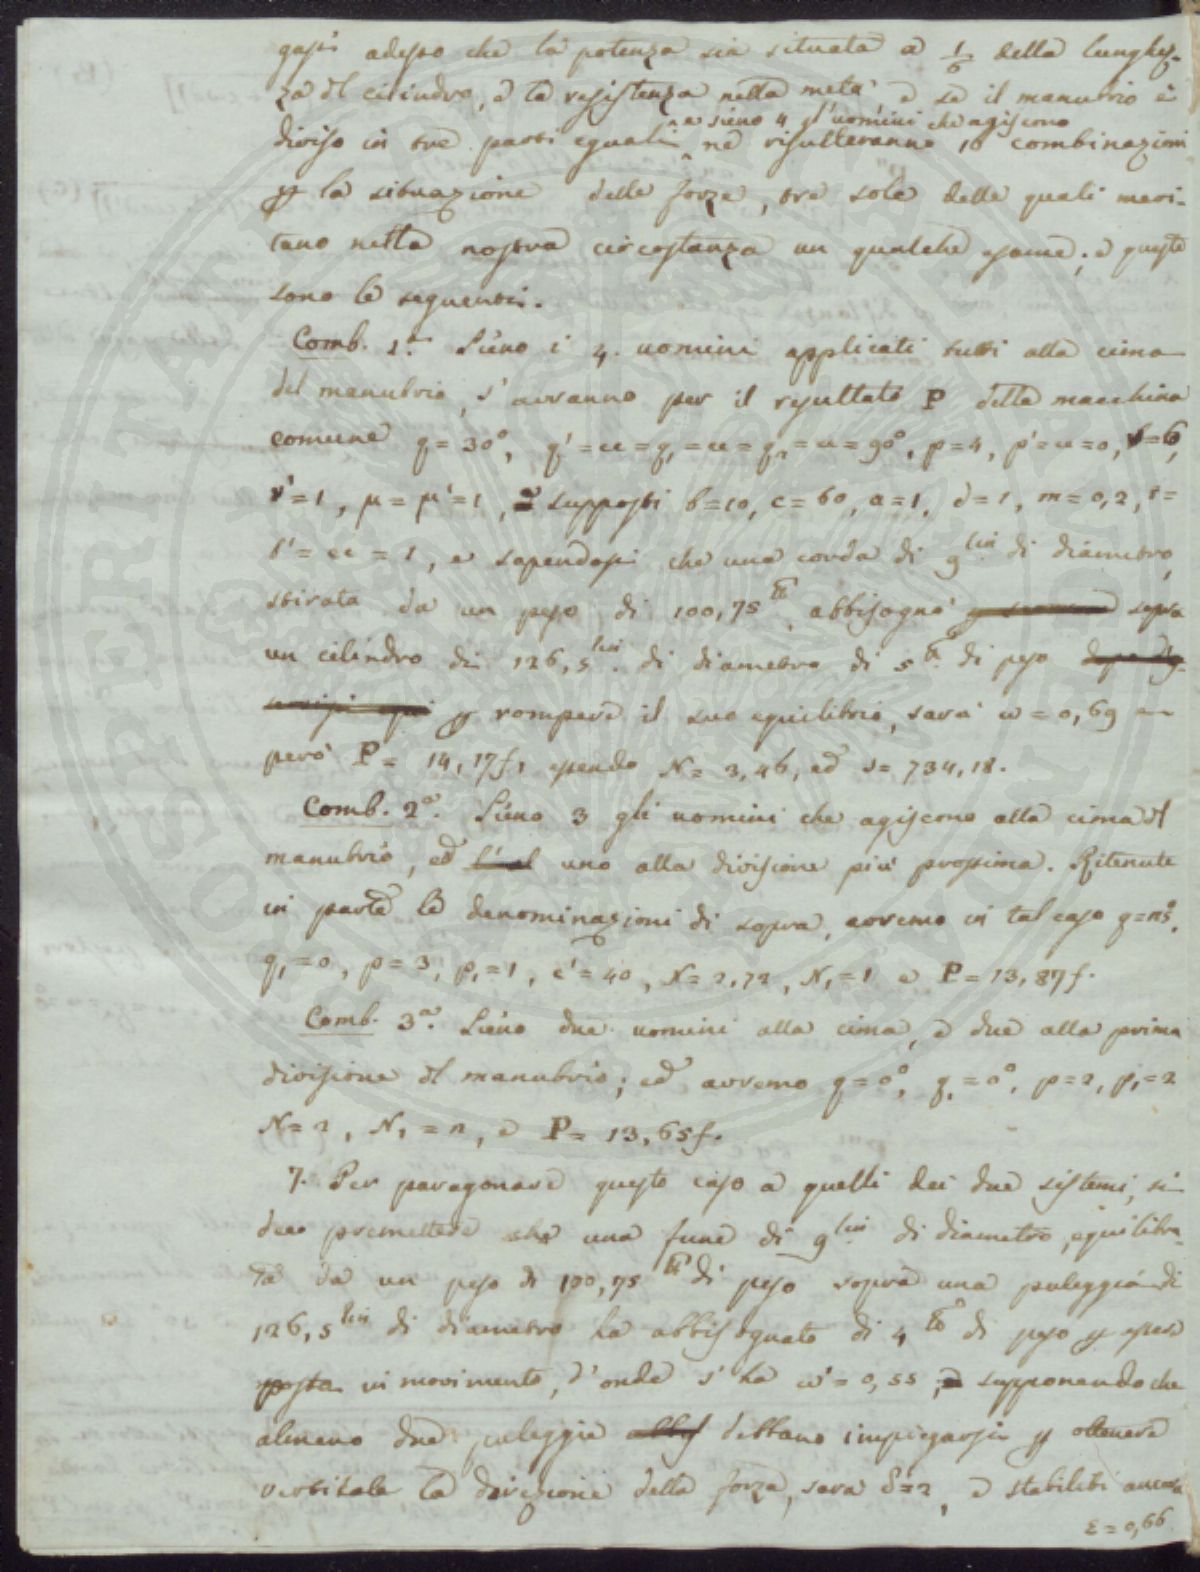 gasi adesso che la potenza sia situata a 1/6 della lunghez-
za del cilindro, e la resistenza nella metà e se il manubrio è
e sieno 4 gl'uomini che agiscono
diviso in tre parti eguali ne risulteranno 16 combinazioni
la situazione delle forze, tre sole delle quali meri-
tano nella nostra circostanza un qualche esame; e queste
sono le seguenti.
Comb. 1.ª Sieno i 4. uomini applicati tutti alla cima
del manubrio, s'avranno per il resultato P della macchina
comune q=30°, q'=&=q,=&=q,,=&=90°, p=4, p'=&=0,
r'=1, μ=μ'=1, supposti b=10, c=60, a=1, d=1, m=0,2,
=&=1, e sapendosi che una corda di 9 lin di diametro,
stirata da un peso di 100,75 lb, abbisognò sopra
un cilindro di 126,5 lin. di diametro di 5 lb. di peso
rompere il suo equilibrio, sarà ω=0,69 e
però P= 14,17f, essendo N= 3,46, ed s= 734,18.
Comb. 2ª. Sieno 3 gli uomini che agiscono alla cima del
manubrio, ed uno alla divisione più prossima. Ritenute
in parte le denominazioni di sopra, avremo in tal caso
q,=0, p=3, p,=1, c'=40, N=2,72, N,=1 e P=13,87f.
Comb. 3ª. Sieno due uomini alla cima, e due alla prima
divisione del manubrio; ed avremo q=0°, q,=0°, p=2, p,=2
N=2, N,=2, e P= 13,65f.
7. Per paragonare questo caso a quelli dei due sistemi, si
deve premettere che una fune di 9 lin di diametro, equilibra-
ta da un peso di 100,75 lb di peso sopra una puleggia di
126,5 lin di diametro ha abbisognato di 4 lb di peso esser
posta in movimento, d'onde s'ha ω'=0,55, e supponendo che
almeno due pulegge debbano impiegarsi ottenere
verticale la direzione della forza, sarà δ=2, e stabiliti ancora
ε=0,66